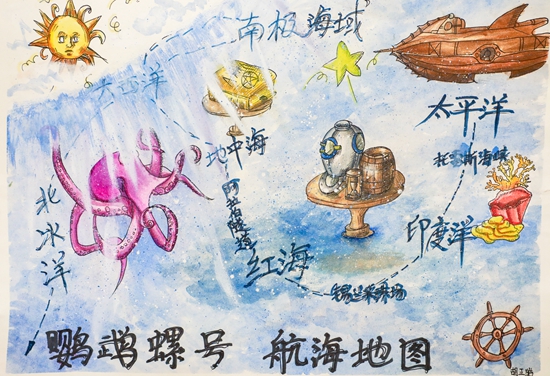 南极海域
大西洋
地中海
太平洋
托雷斯海峡
阿拉伯隧道
北冰洋
印度洋
红海
锡兰采珠场
鹦鹉螺号 航海地图